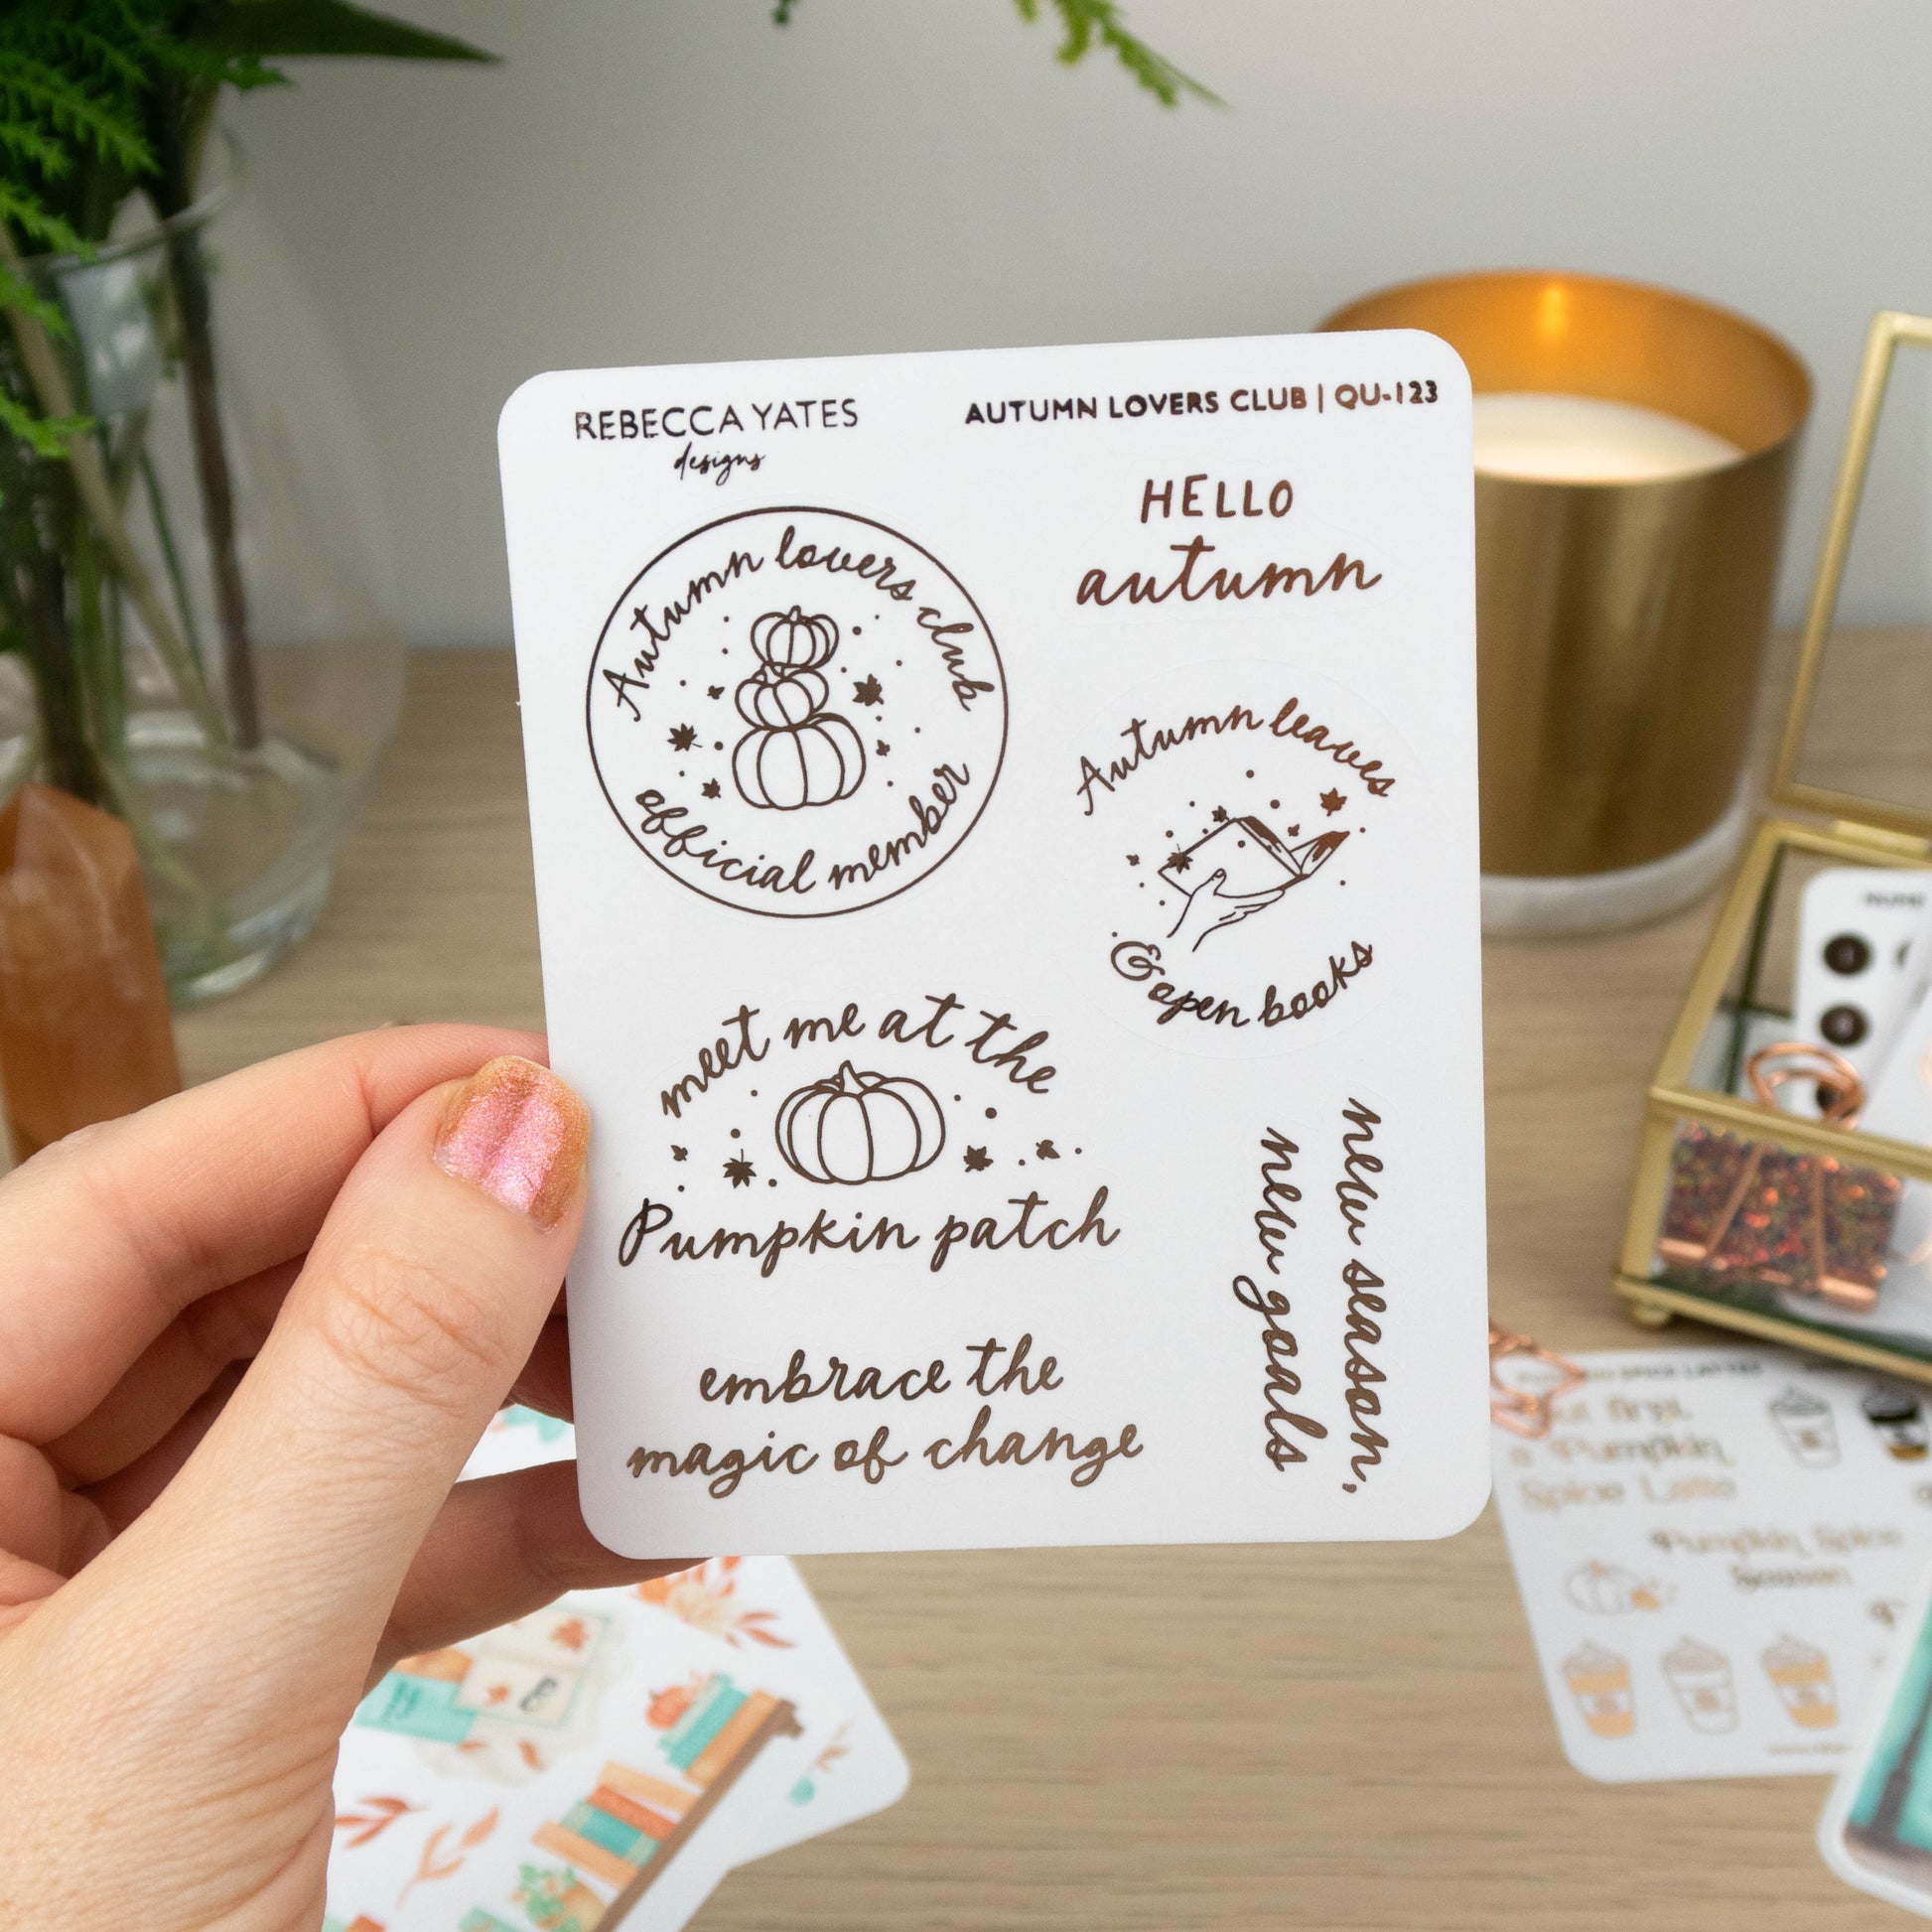 REBECCA YATES
designs
AUTUMN LOVERS CLUB | QU-123
Autumn lovers club
official member
HELLO
autumn
Autumn leaves
& open books
meet me at the
Pumpkin patch
new season,
new goals
embrace the
magic of change
first,
a Pumpkin
Spice Latte
Pumpkin Spice
Season